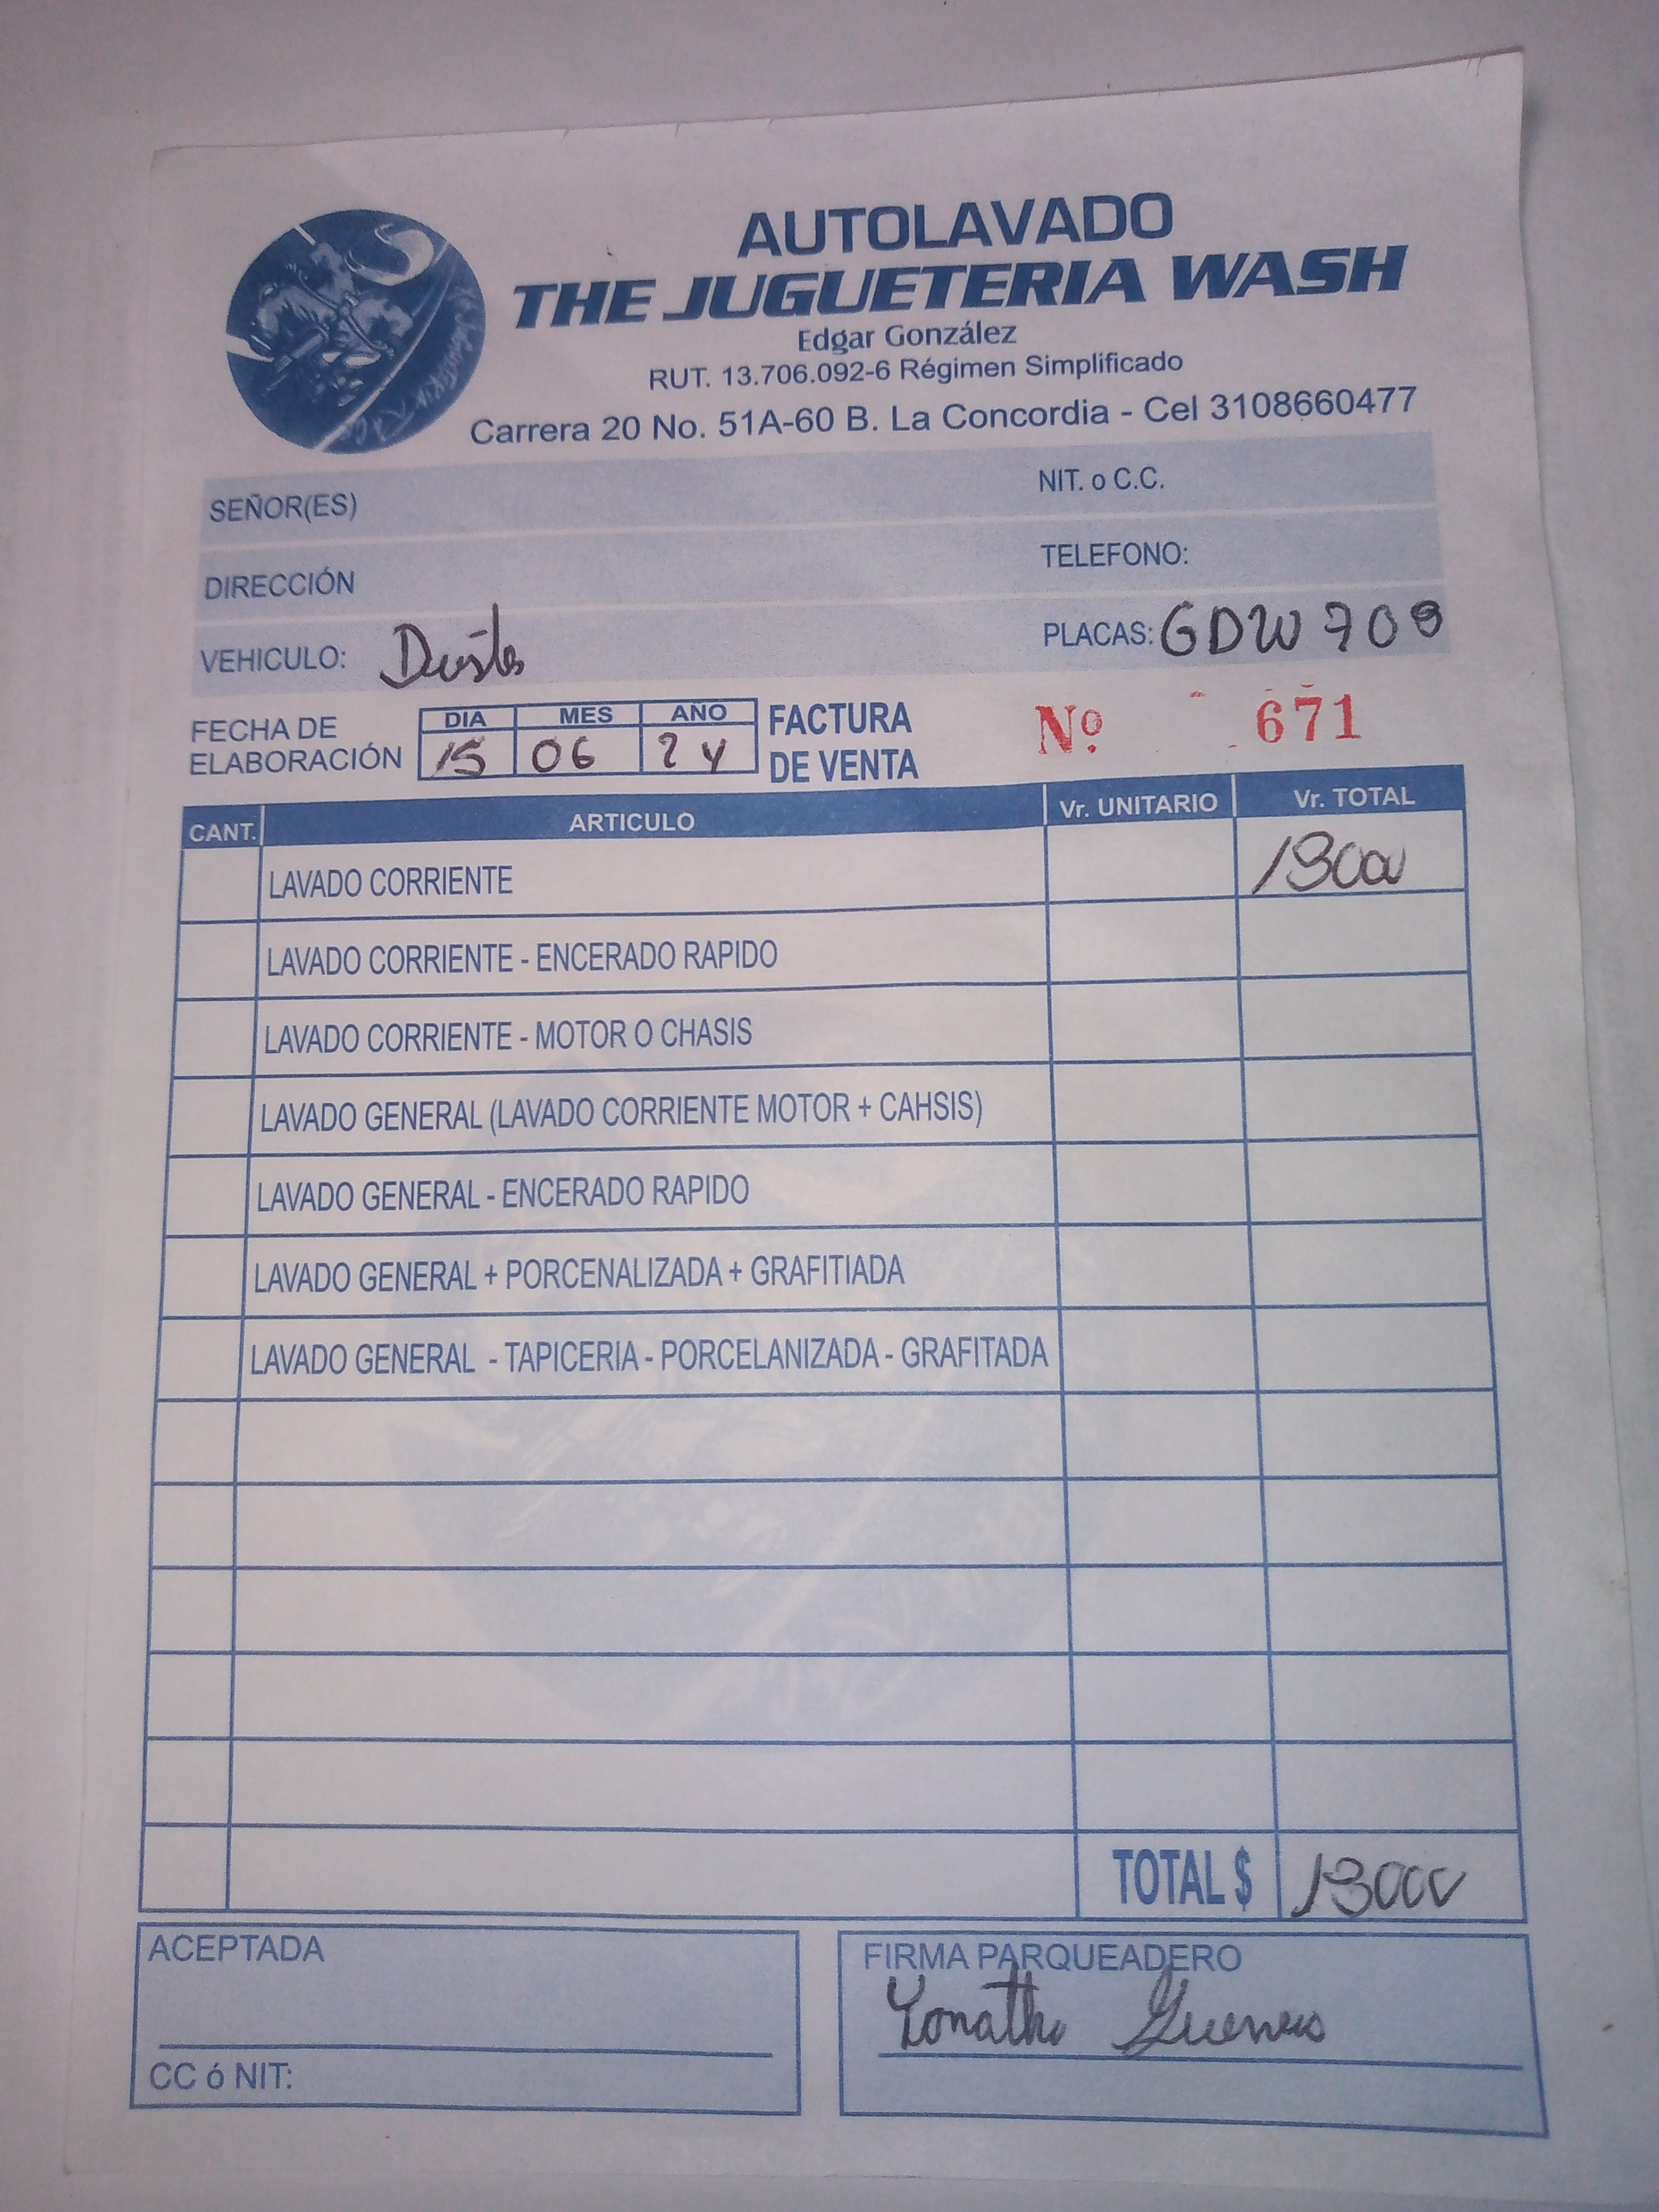 AUTOLAVADO
THE JUGUETERIA WASH
Edgar González
RUT. 13.706.092-6 Régimen Simplificado
Carrera 20 No. 51A-60 B. La Concordia - Cel 3108660477
SEÑOR(ES) NIT. o C.C.
DIRECCIÓN TELEFONO:
VEHICULO: PLACAS: GDW 709
FECHA DE ELABORACIÓN DIA MES AÑO FACTURA DE VENTA Nº 671
15 06 24
CANT. ARTICULO Vr. UNITARIO Vr. TOTAL
LAVADO CORRIENTE 13000
LAVADO CORRIENTE - ENCERADO RAPIDO
LAVADO CORRIENTE - MOTOR O CHASIS
LAVADO GENERAL (LAVADO CORRIENTE MOTOR + CAHSIS)
LAVADO GENERAL - ENCERADO RAPIDO
LAVADO GENERAL + PORCENALIZADA + GRAFITIADA
LAVADO GENERAL - TAPICERIA - PORCELANIZADA - GRAFITADA
TOTAL $ 13000
ACEPTADA FIRMA PARQUEADERO
CC ó NIT: